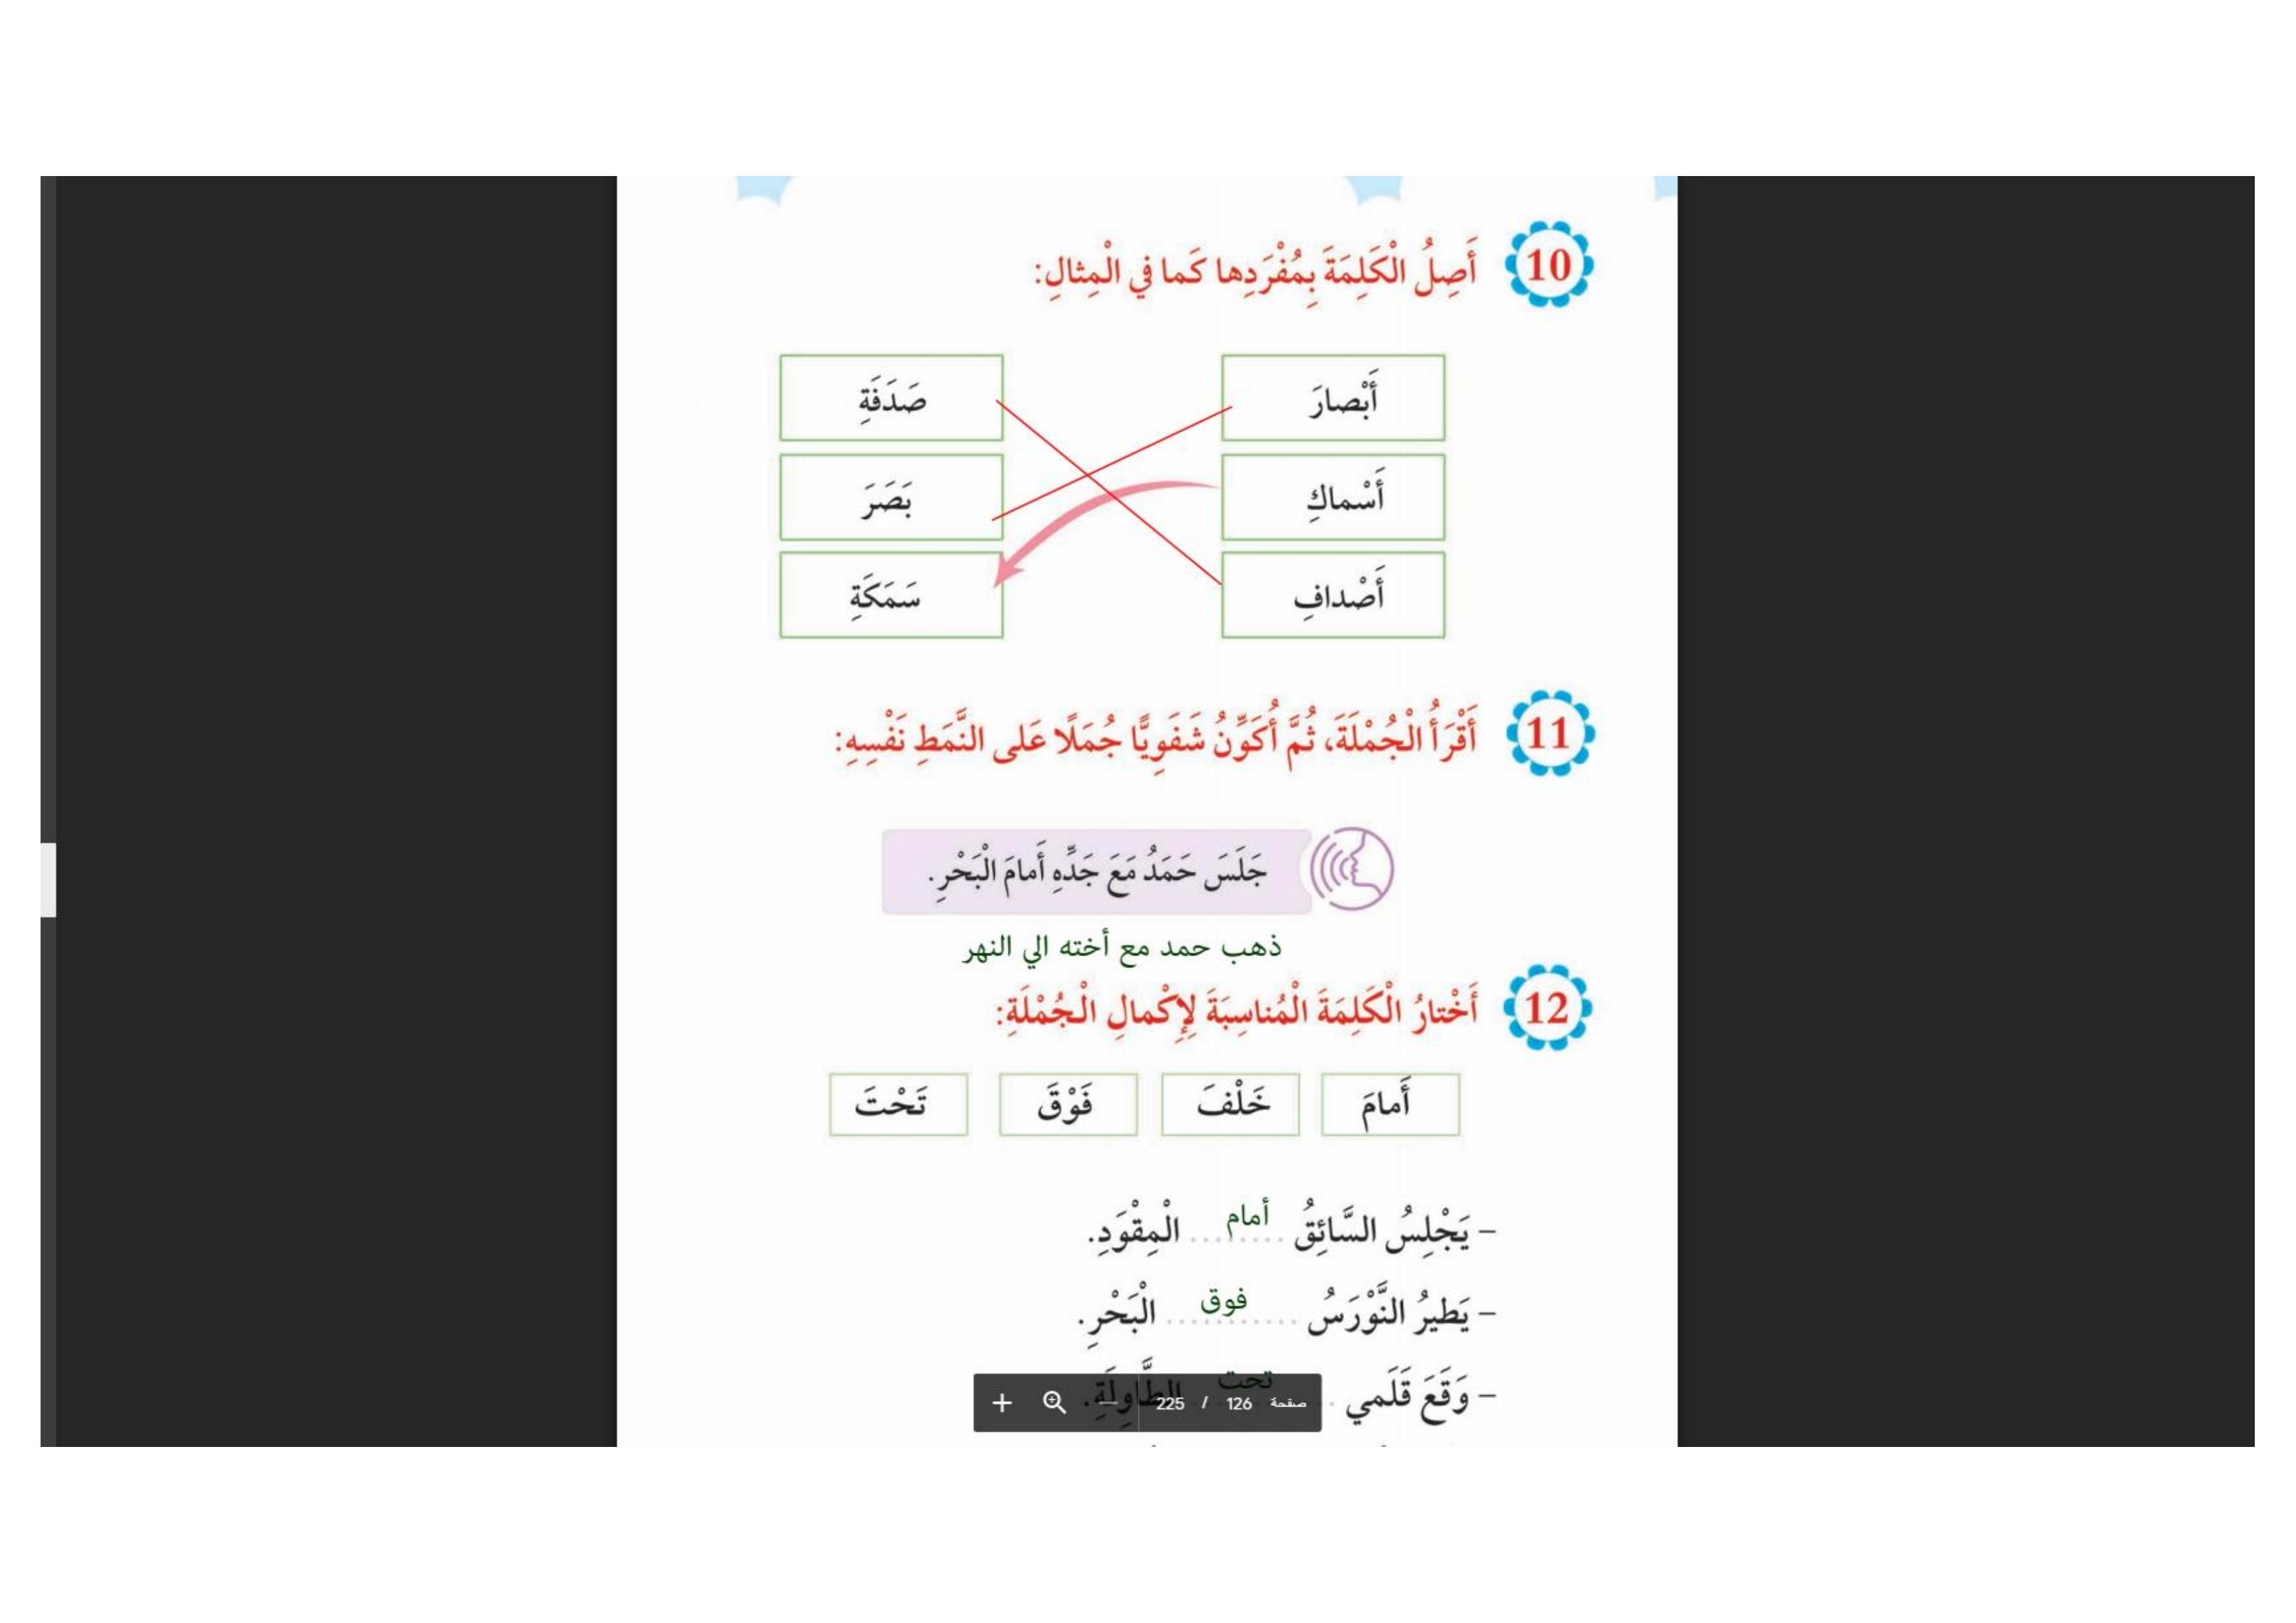 10 أَصِلُ الْكَلِمَةَ بِمُفْرَدِها كَما في الْمِثالِ:
أَبْصارَ صَدَفَةِ
أَسْماكِ بَصَرَ
أَصْدافِ سَمَكَةِ
11 أَقْرَأُ الْجُمْلَةَ، ثُمَّ أُكَوِّنُ شَفَوِيًّا جُمَلًا عَلى النَّمَطِ نَفْسِهِ:
جَلَسَ حَمَدُ مَعَ جَدِّهِ أَمامَ الْبَحْرِ.
ذهب حمد مع أخته الي النهر
12 أَخْتارُ الْكَلِمَةَ الْمُناسِبَةَ لِإِكْمالِ الْجُمْلَةِ:
أَمامَ خَلْفَ فَوْقَ تَحْتَ
– يَجْلِسُ السَّائِقُ أمام الْمِقْوَدِ.
– يَطيرُ النَّوْرَسُ فوق الْبَحْرِ.
– وَقَعَ قَلَمي تحت الطَّاوِلَةِ.
صفحة 126 / 225